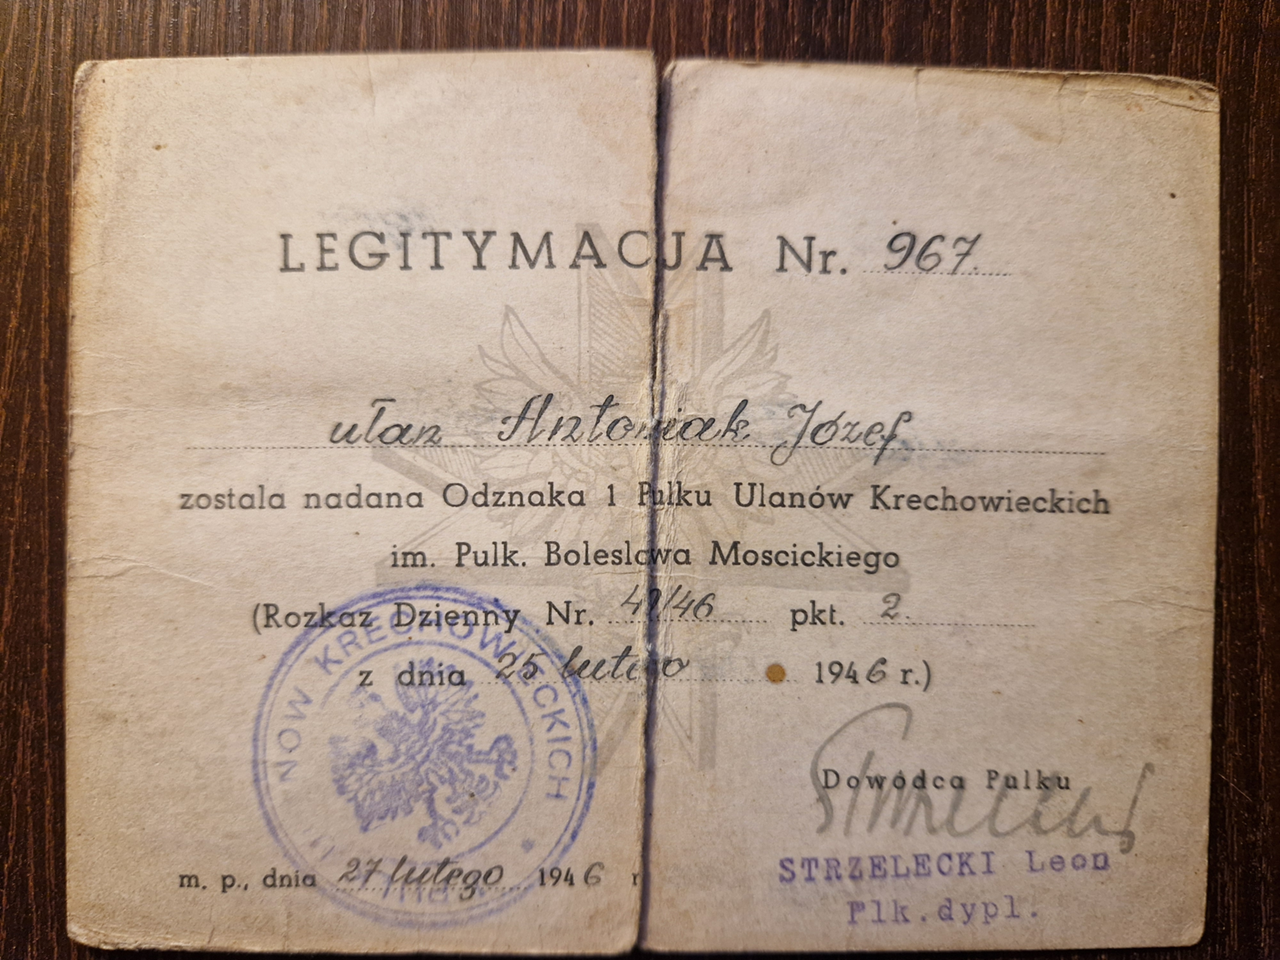 LEGITYMACJA Nr. 967.
ułan Antoniak Józef
zostala nadana Odznaka 1 Pulku Ulanów Krechowieckich
im. Pulk. Boleslawa Moscickiego
(Rozkaz Dzienny Nr. 49/46 pkt. 2.
z dnia 25 lutego 1946 r.)
NOW KRECHOWIECKICH
Dowódca Pulku
Strzelecki
STRZELECKI Leon
Plk.dypl.
m. p., dnia 27 lutego 1946 r